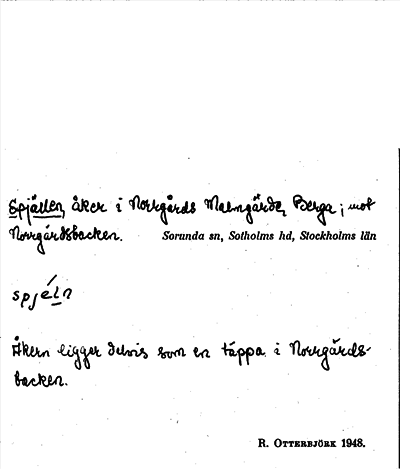 Spjällen, åker i Norrgårds Malmgärde, Berga; mot
Norrgårdsbacken. Sorunda sn, Sotholms hd, Stockholms län
spjéln
Åkern ligger delvis som en täppa i Norrgårds-
backen.
R. OTTERBJÖRK 1948.